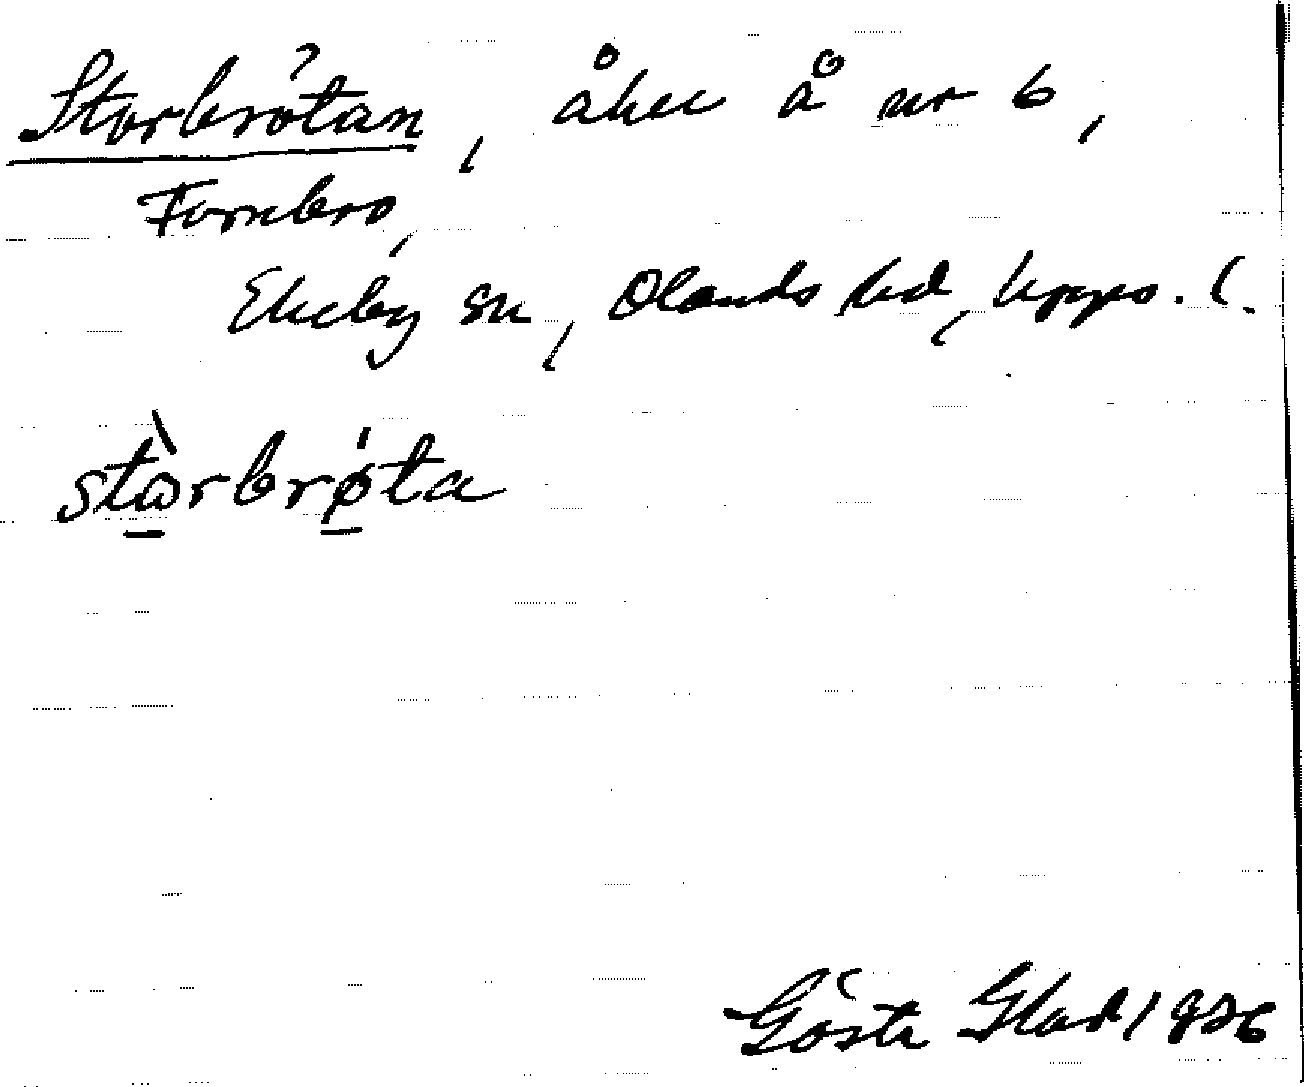 Storbrötan, åker å nr 6,
Fornbro,
Ekeby sn, Olands hd, Upps. l.
stòrbrø̍ta
Gösta Glad 1926